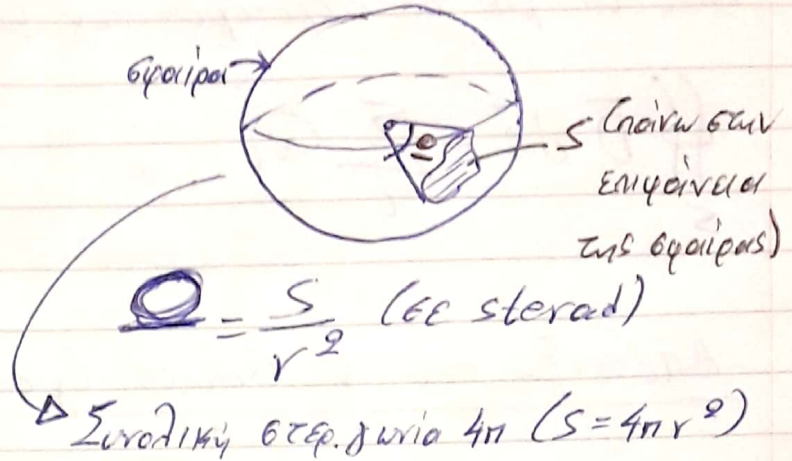 σφαίρα
Ω
S (πάνω στην
επιφάνεια
της σφαίρας)
Ω = S / r² (σε sterad)
Συνολική στερ. γωνία 4π (S = 4πr²)